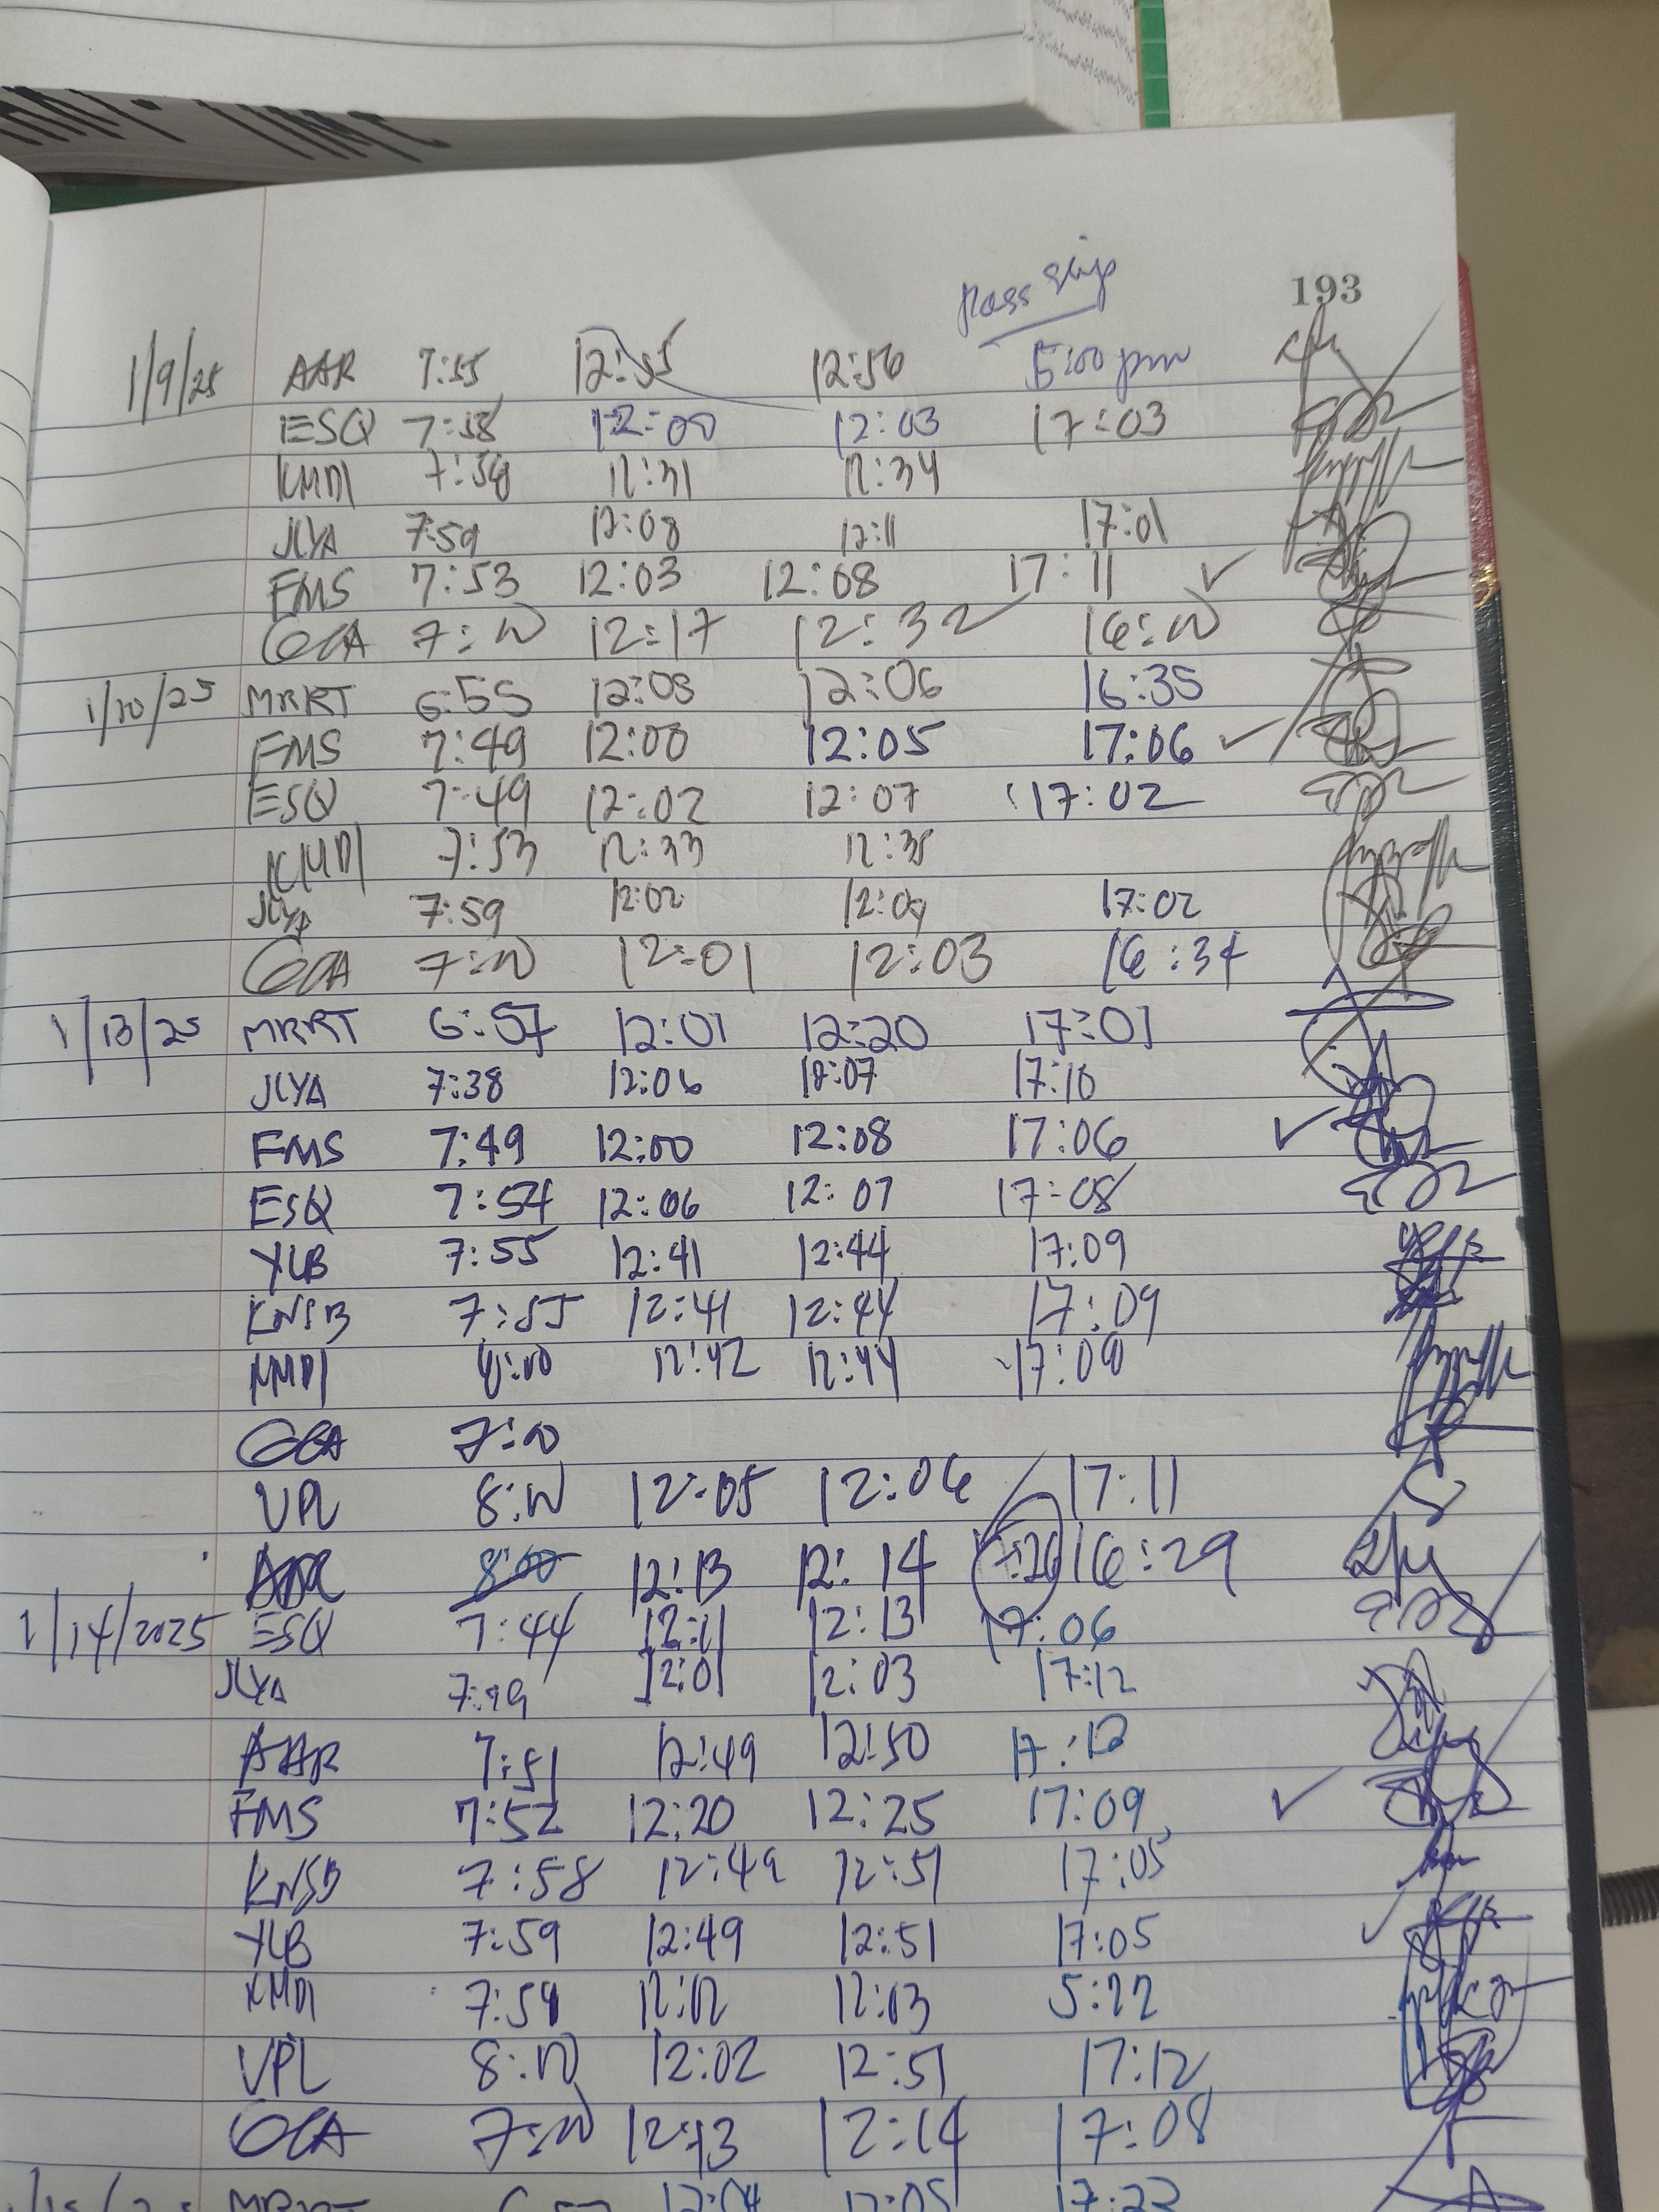 193
Pass slip
1/9/25 AAR 7:55 12:55 12:56 5:00 pm
ESQ 7:58 12:00 12:03 17:03
KMDI 7:58 12:31 12:34
JLYA 7:59 12:08 12:11 17:01
FMS 7:53 12:03 12:08 17:11 ✓
GCA 7:00 12:17 12:32 16:00
1/10/25 MRRT 6:55 12:03 12:06 16:35
FMS 7:49 12:00 12:05 17:06 ✓
ESQ 7:49 12:02 12:07 17:02
KMDI 7:53 12:33 12:35
JLYA 7:59 12:02 12:04 17:02
GCA 7:00 12:01 12:03 16:34
1/13/25 MRRT 6:57 12:01 12:20 17:01
JLYA 7:38 12:06 12:07 17:10
FMS 7:49 12:00 12:08 17:06 ✓
ESQ 7:54 12:06 12:07 17:08
YLB 7:55 12:41 12:44 17:09
KNSB 7:55 12:41 12:44 17:09
KMDI 8:00 12:42 12:44 17:09
GCA 7:00
VPL 8:00 12:05 12:06 17:11
AAR 8:00 12:13 12:14 16:29
1/14/2025 ESQ 7:44 12:11 12:13 17:06
JLYA 12:01 12:03 17:12
AAR 7:51 12:49 12:50 17:12
FMS 7:52 12:20 12:25 17:09 ✓
KNSB 7:58 12:49 12:51 17:05
YLB 7:59 12:49 12:51 17:05
KMDI 7:59 12:02 12:03 5:22
VPL 8:00 12:02 12:51 17:12
GCA 7:00 12:13 12:14 17:08
MRRT 12:04 12:05 17:23